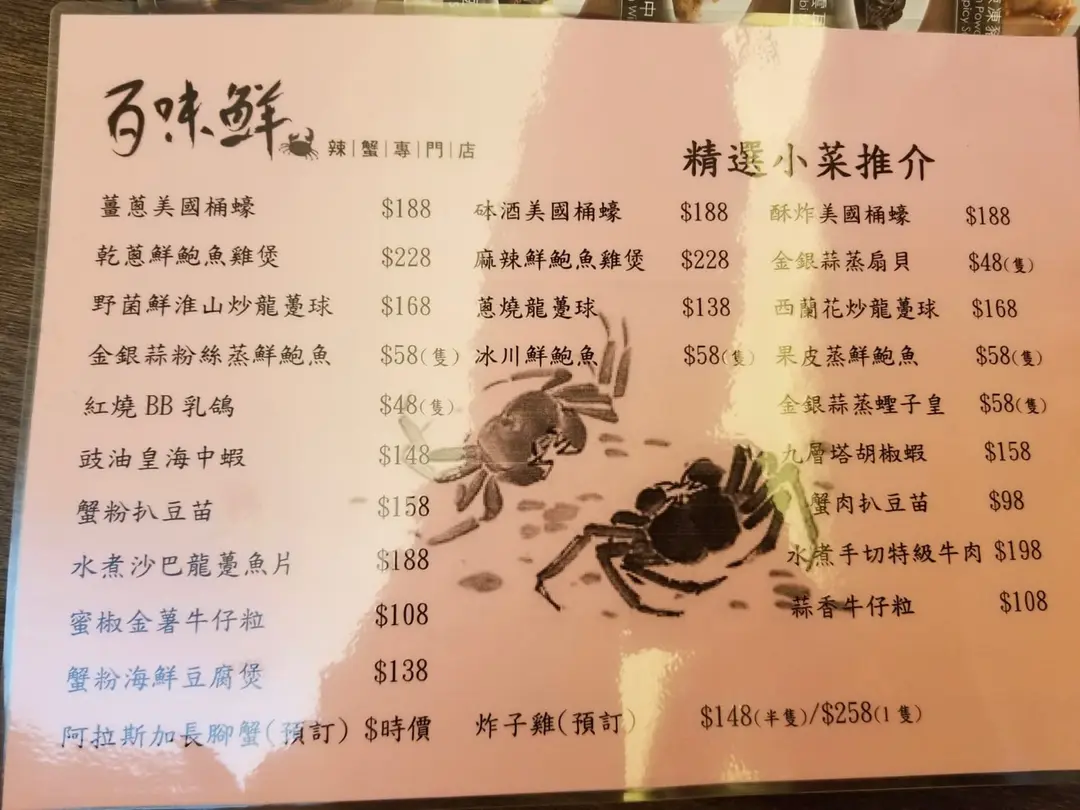 百味鮮
辣|蟹|專|門|店
精選小菜推介
薑蔥美國桶蠔 $188 砵酒美國桶蠔 $188 酥炸美國桶蠔 $188
乾蔥鮮鮑魚雞煲 $228 麻辣鮮鮑魚雞煲 $228 金銀蒜蒸扇貝 $48(隻)
野菌鮮淮山炒龍躉球 $168 蔥燒龍躉球 $138 西蘭花炒龍躉球 $168
金銀蒜粉絲蒸鮮鮑魚 $58(隻) 冰川鮮鮑魚 $58(隻) 果皮蒸鮮鮑魚 $58(隻)
紅燒BB乳鴿 $48(隻) 金銀蒜蒸蟶子皇 $58(隻)
豉油皇海中蝦 $148 九層塔胡椒蝦 $158
蟹粉扒豆苗 $158 蟹肉扒豆苗 $98
水煮沙巴龍躉魚片 $188 水煮手切特級牛肉 $198
蜜椒金薯牛仔粒 $108 蒜香牛仔粒 $108
蟹粉海鮮豆腐煲 $138
阿拉斯加長腳蟹(預訂) $時價 炸子雞(預訂) $148(半隻)/$258(1隻)